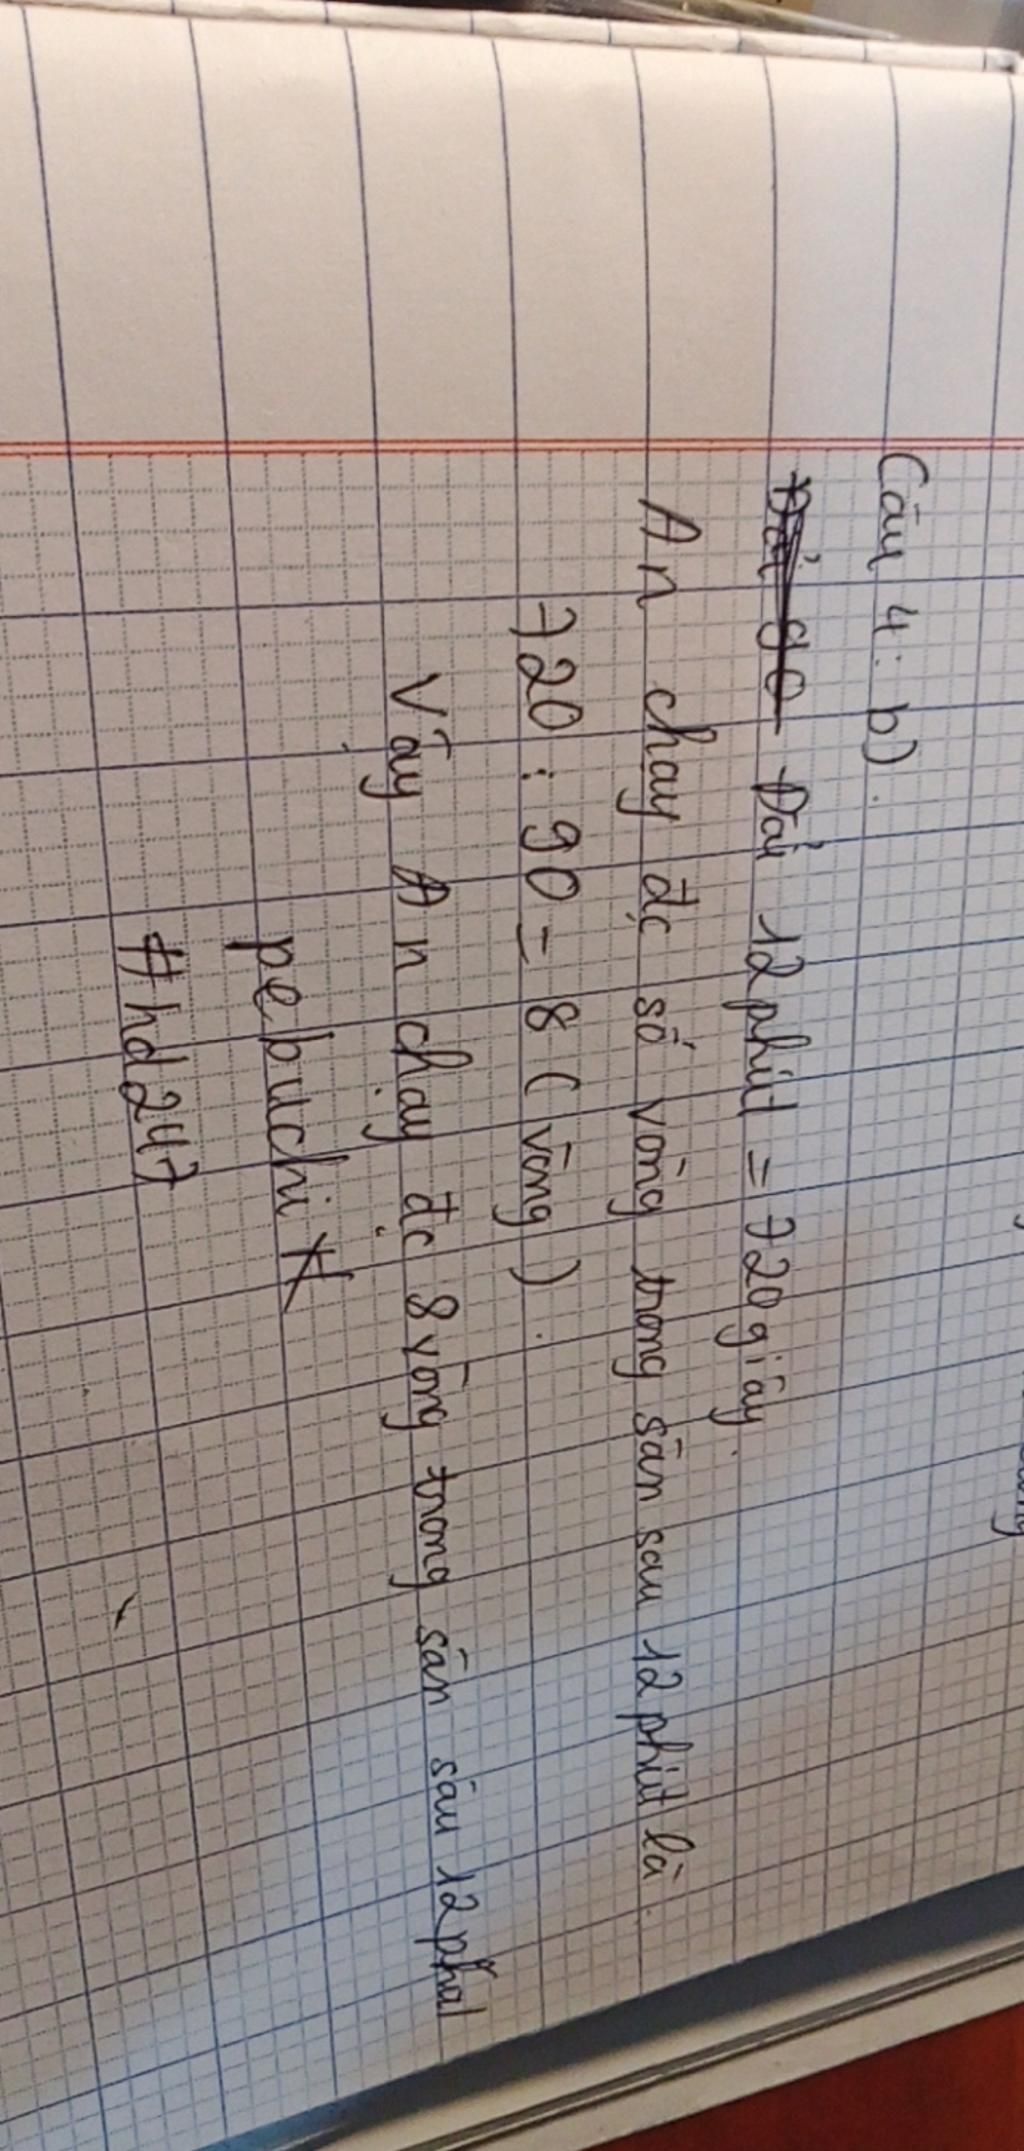 Câu 4: b).
Đổi 12 phút = 720 giây.
An chay đc số vòng trong sân sau 12 phút là
720 : 90 = 8 (vòng).
Vây An chạy đc 8 vòng trong sân sáu 12 phút
pebuchi
#hd247